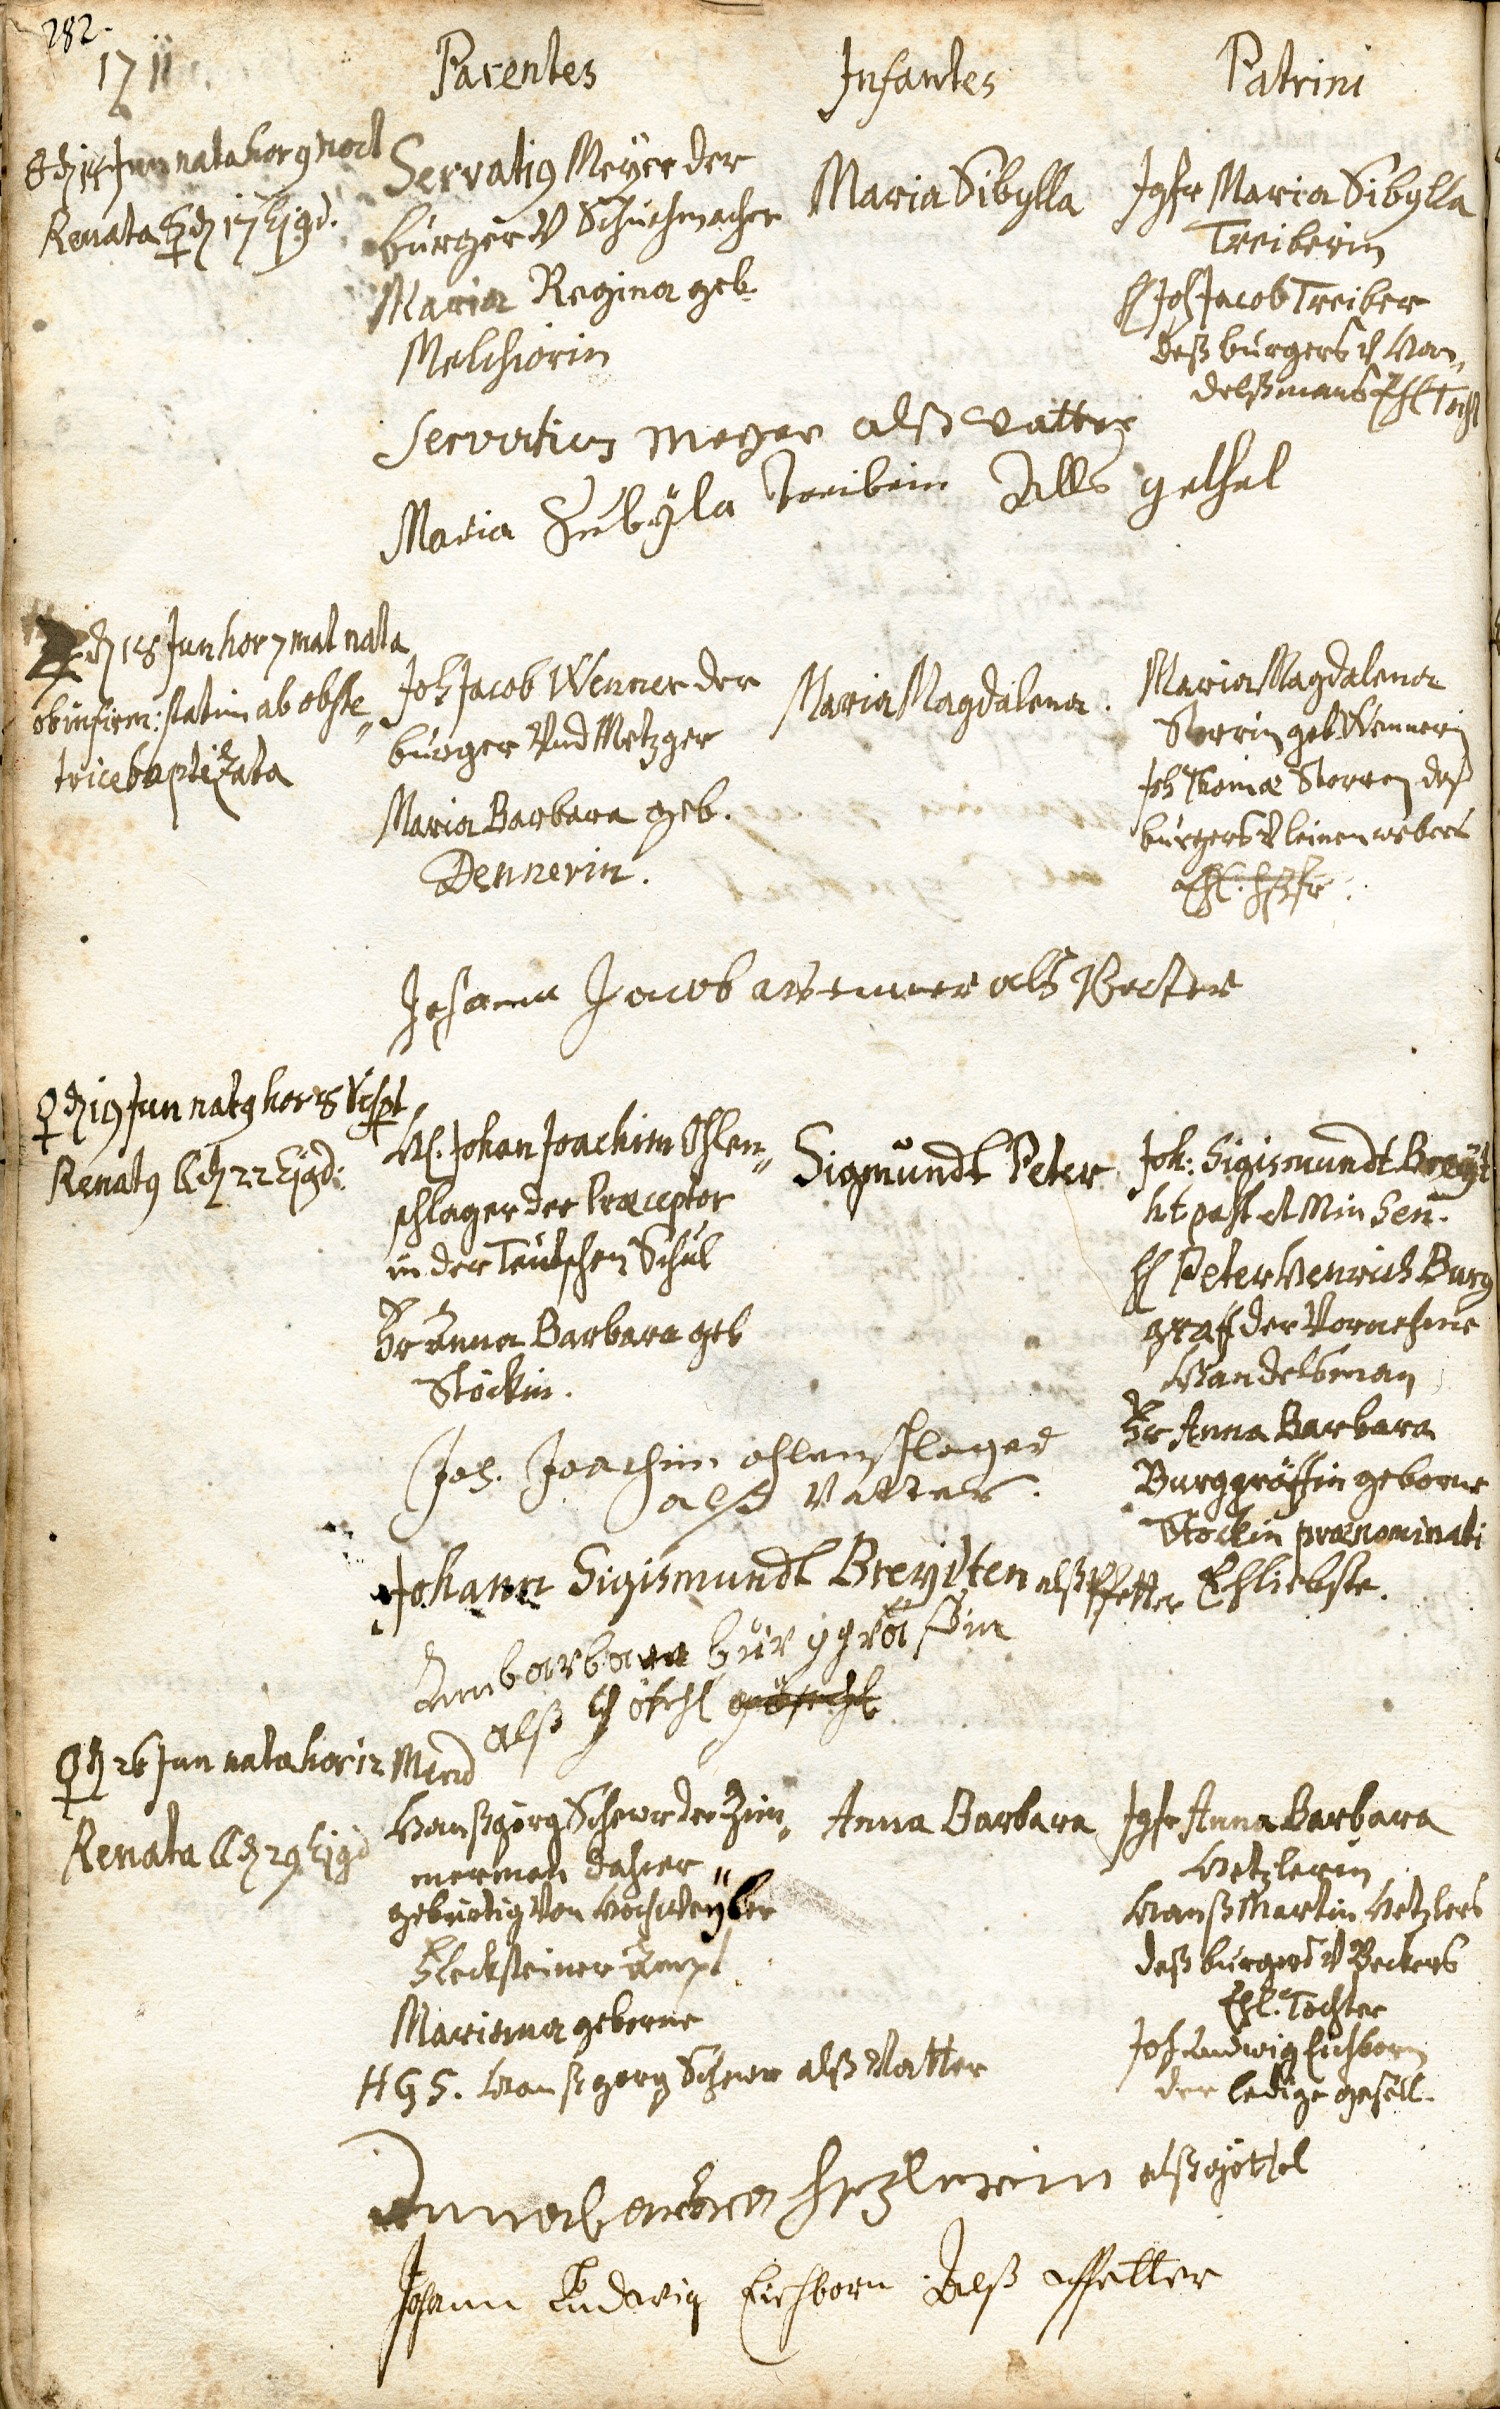 282.
1711.
Parentes
Infantes
Patrini
d 15 Jun nata hor 9 noct
Renata ☿ d 17 Ejgd.
Servatig Meyer der
burger V Schuchmacher
Maria Regina geb
Melchiorin
Maria Sibylla
Jgfr Maria Sibylla
Treiberin
H Joh Jacob Treiber
deß burgers V Han„
delßmans Ehl Tocht
Servatius Meyer alß Vatter
Maria Subÿla Treiberin Alls gethel
♃ d 18 Jun hor 7 mat nata
ob infirm: statim ab obste„
trice baptizata
Joh Jacob Wenner der
burger Vnd Metzger
Maria Barbara geb.
Dennerin.
Maria Magdalena.
Maria Magdalena
Storrin geb Wennerin
Joh Thomæ Storren deß
burgers V leinenwebers
Ehl. Hßfr.
Johann Jacob Wenner als Vatter
♀ d 19 Jun natg hor 8 Vesp
Renatg d 22 Ejgd:
H. Johan Joachim Ohlen„
schlager der Præceptor
in der Teütschen Schul
Fr Anna Barbara geb
Stöckin.
Sigmundt Peter
Joh: Sigismundt Breyt
h t past et Min Sen.
H Peter Henrich Burg
graff der Vornehme
Handelsman
Fr Anna Barbara
Burggräffin geborne
Stöckin prænominati
Ehliebste.
Joh. Joachim ohlenschlager
alß Vatter.
Johann Sigismundt Breyiten alß Pfetter
Annbarbara burggräffin
alß
♀ d 26 Jun nata hor 12 Merid
Renata d 29 Ejgd
Hanßgörg Schewr der Zim„
merman dahier
gebürtig Von Hochweyler
Flecksteiner Ampt
Mariana geborne
Anna Barbara
Jgfr Anna Barbara
Hetzlerin
Hanß Martin Hetzlers
deß burgers V Beckers
Ehl. Tochter
Joh Ludwig Eichborn
der ledige gesell.
HGS. Hanß georg Schewr alß Vatter
Annabarbara Hetzlerin alß göthel
Johann Ludwig Eichborn Alß Pfetter